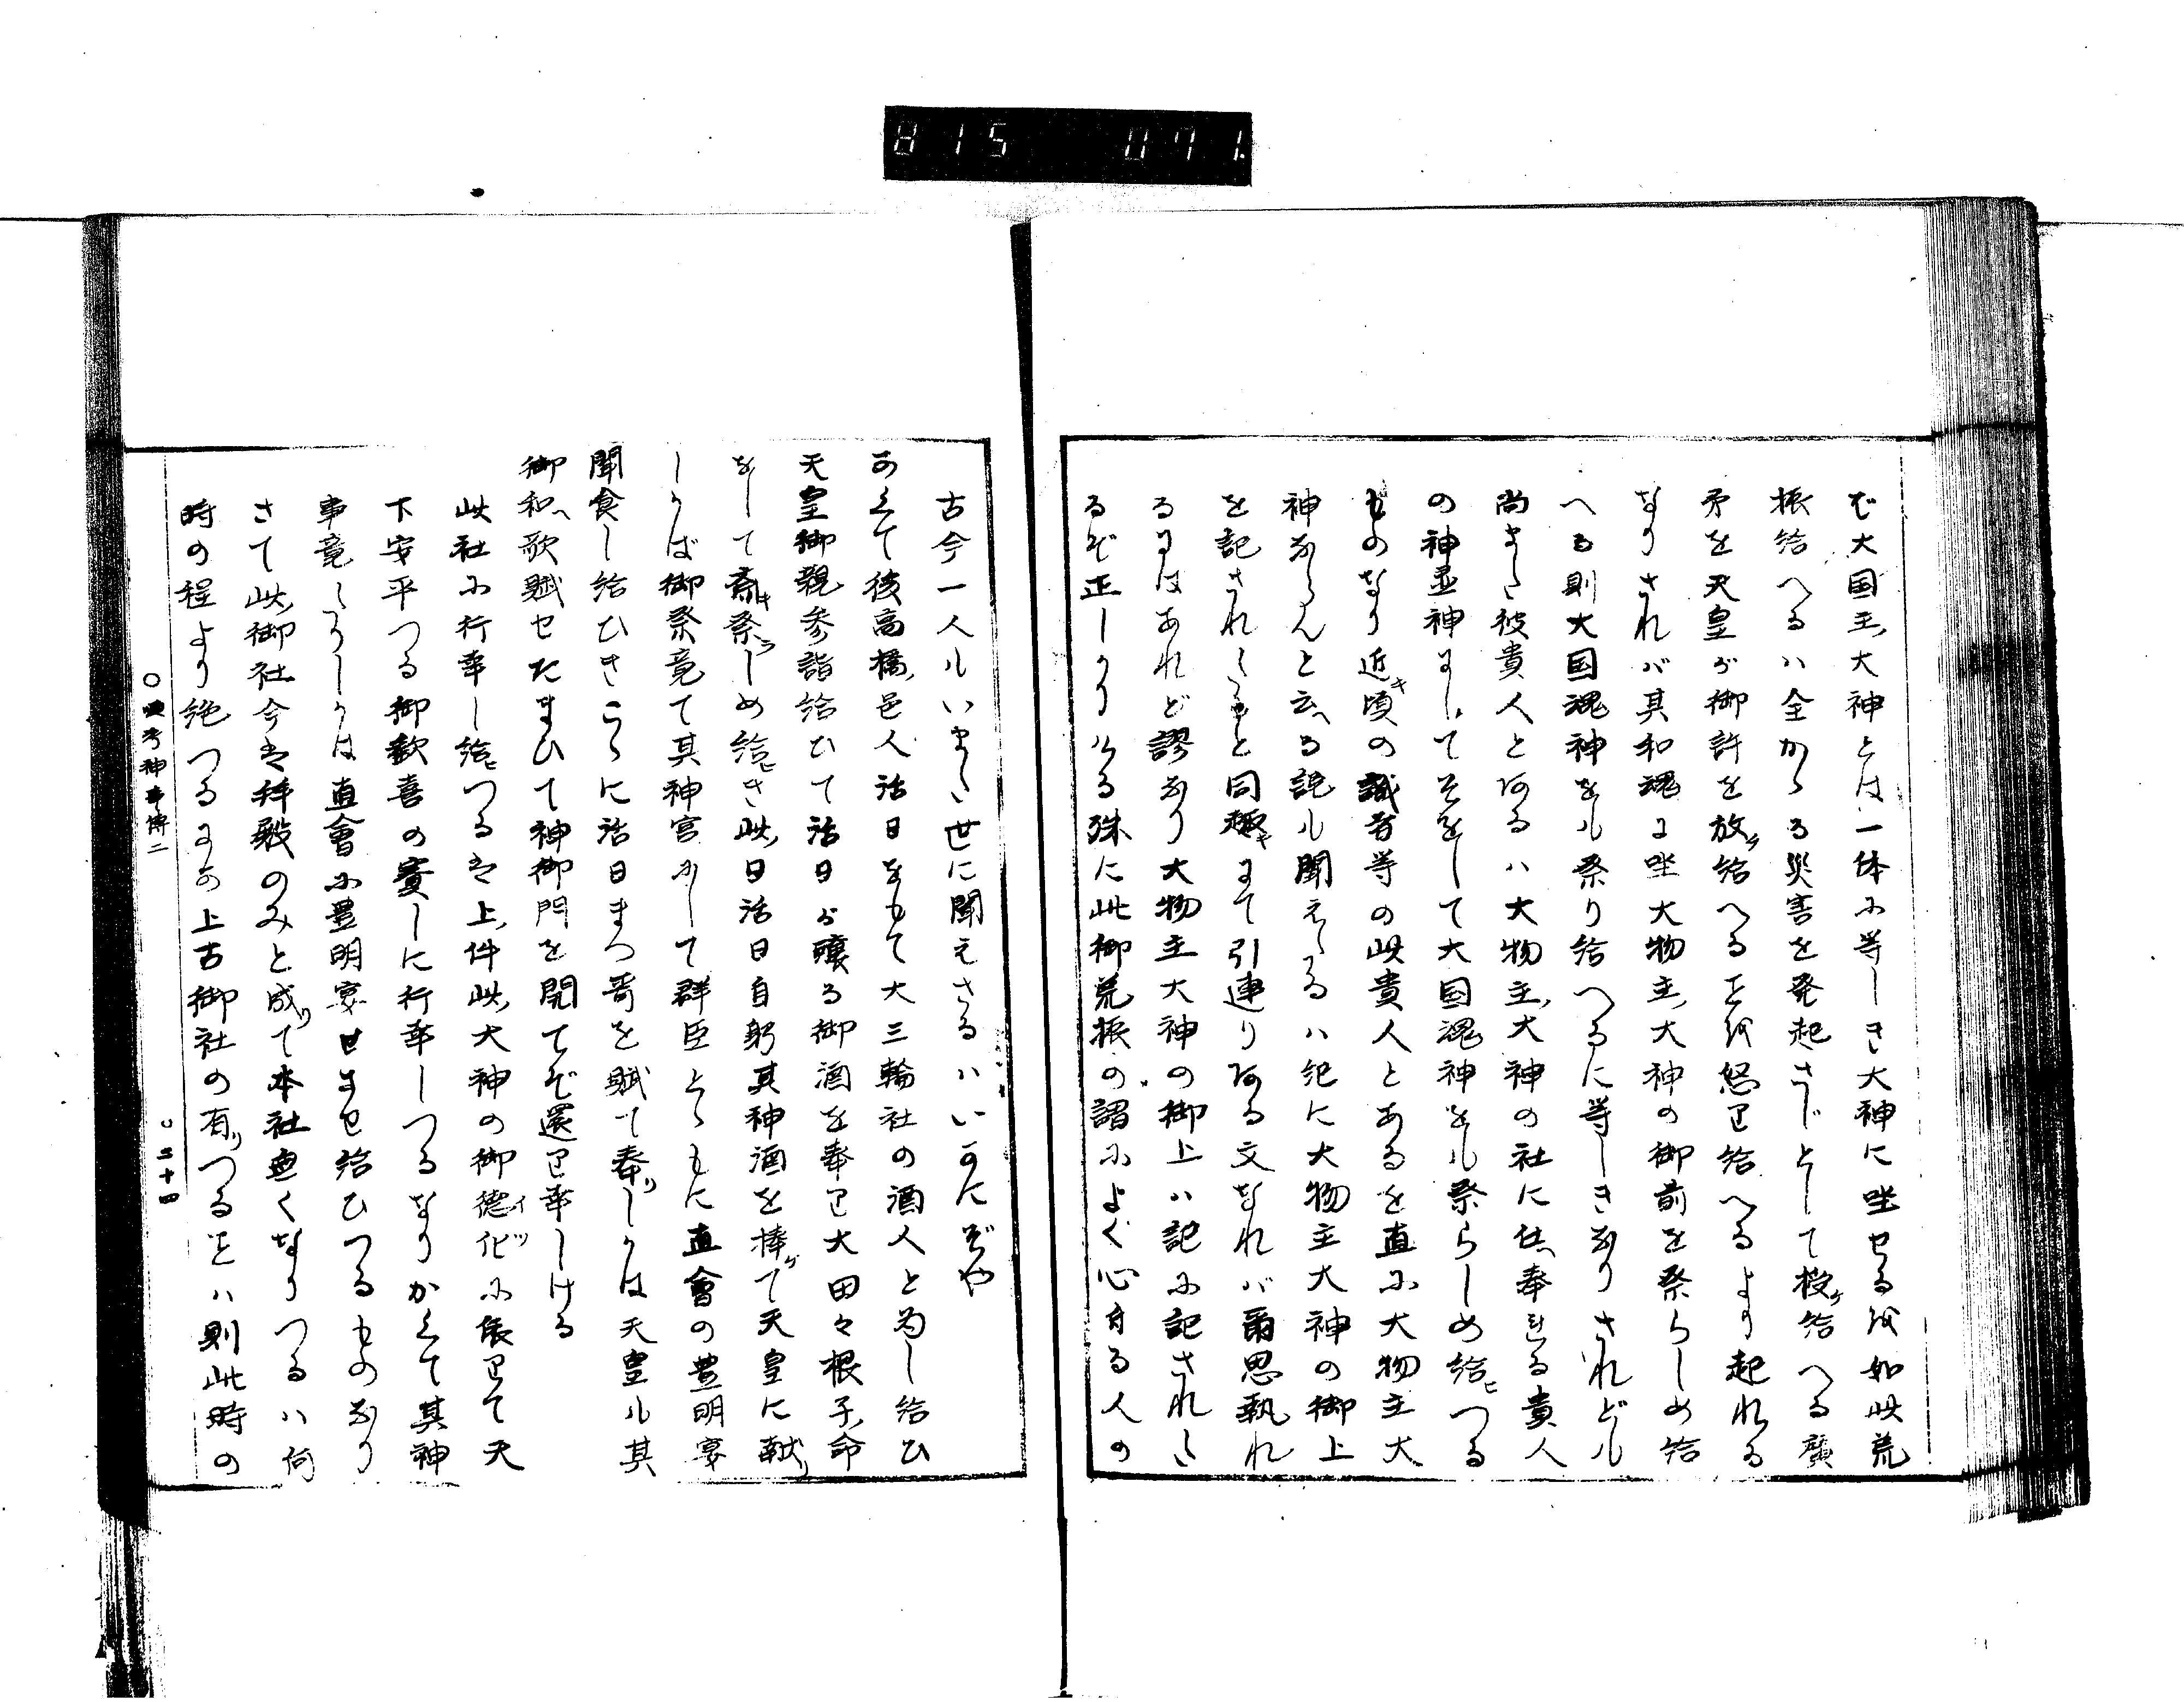 815 071.
ぞ大国主大神とは一体に等しき大神に坐せるを如此荒
振給へるハ全かゝる災害を発起さじとして授ケ給へる廣
矛を天皇が御許を放ケ給へるを怒り給へるより起れる
なりされバ其和魂に坐大物主大神の御前を祭らしめ給
へる則大国魂神をも祭り給へるに等しきなりされども
尚また彼貴人とあるハ大物主大神の社に仕奉れる貴人
の神霊神にしてそをして大国魂神をも祭らしめ給ヒつる
ものなり近キ頃の識者等の此貴人とあるを直に大物主大
神ならんと云へる説も聞えたるハ紀に大物主大神の御上
を記されたると同趣キにて引連りある文なれバ爾思執れ
るにはあれど謬なり大物主大神の御上ハ記に記された
るぞ正しかりける殊に此御荒振の謂によく心得る人の
古今一人もいまた世に聞えさるハいかにぞや
かくて後高橋邑人活日をもて大三輪社の酒人と為し給ひ
天皇御親参詣給ひて活日が醸る御酒を奉り大田々根子命
をして斎キ祭ラしめ給ヒき此日活日自躬其神酒を捧ゲて天皇に献リ
しかば御祭竟て其神宮にして群臣とゝもに直會の豊明宴
聞食し給ひきこゝに活日まつ哥を賦て奉リしかは天皇も其
御和へ歌賦せたまひて神御門を開てぞ還り幸しける
此社に行幸し給ヒつるは上件此大神の御徳化イツに依りて天
下安平つる御歓喜の賽しに行幸しつるなりかくて其神
事竟たりしかは直會に豊明宴せませ給ひつるものなり
さて此御社今は拝殿のみと成リて本社無くなりつるハ何
時の程より絶つるにか上古御社の有リつることハ則此時の
神事傳二　○二十四